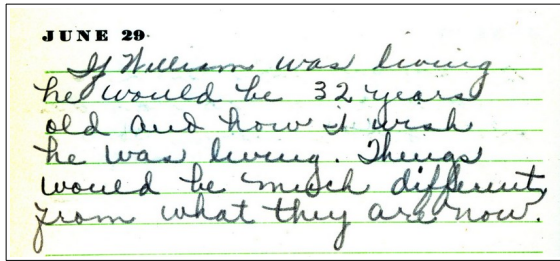 JUNE 29
If William was living
he would be 32 years
old and how I wish
he was living. Things
would be much different
from what they are now.